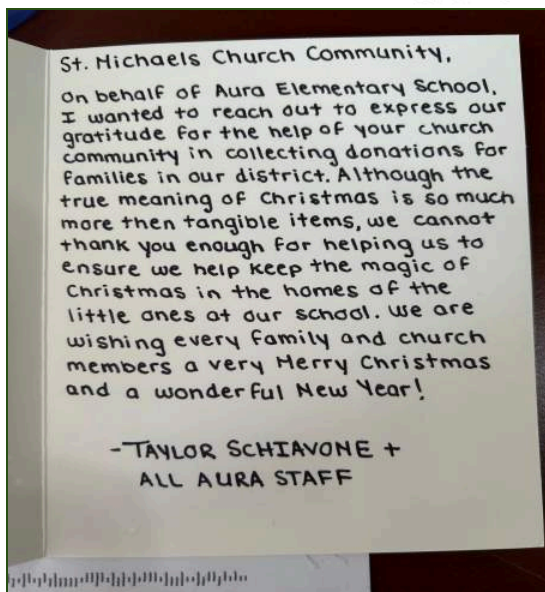 St. Michaels Church Community,
On behalf of Aura Elementary School,
I wanted to reach out to express our
gratitude for the help of your church
community in collecting donations for
families in our district. Although the
true meaning of Christmas is so much
more then tangible items, we cannot
thank you enough for helping us to
ensure we help keep the magic of
Christmas in the homes of the
little ones at our school. We are
wishing every family and church
members a very Merry Christmas
and a wonderful New Year!
- TAYLOR SCHIAVONE +
ALL AURA STAFF